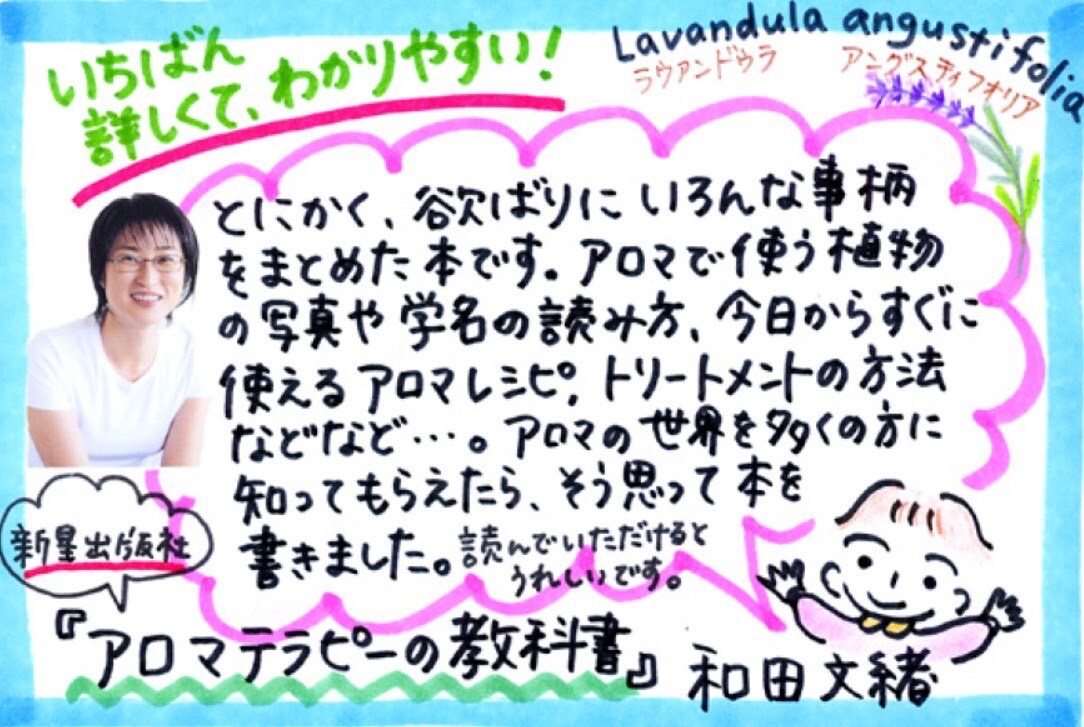 いちばん
詳しくて、わかりやすい!
Lavandula angustifolia
ラヴァンドウラ アングスティフォリア
とにかく、欲ばりにいろんな事柄
をまとめた本です。アロマで使う植物
の写真や学名の読み方、今日からすぐに
使えるアロマレシピ、トリートメントの方法
などなど…。アロマの世界を多くの方に
知ってもらえたら、そう思って本を
書きました。読んでいただけると
うれしいです。
新星出版社
『アロマテラピーの教科書』和田文緒